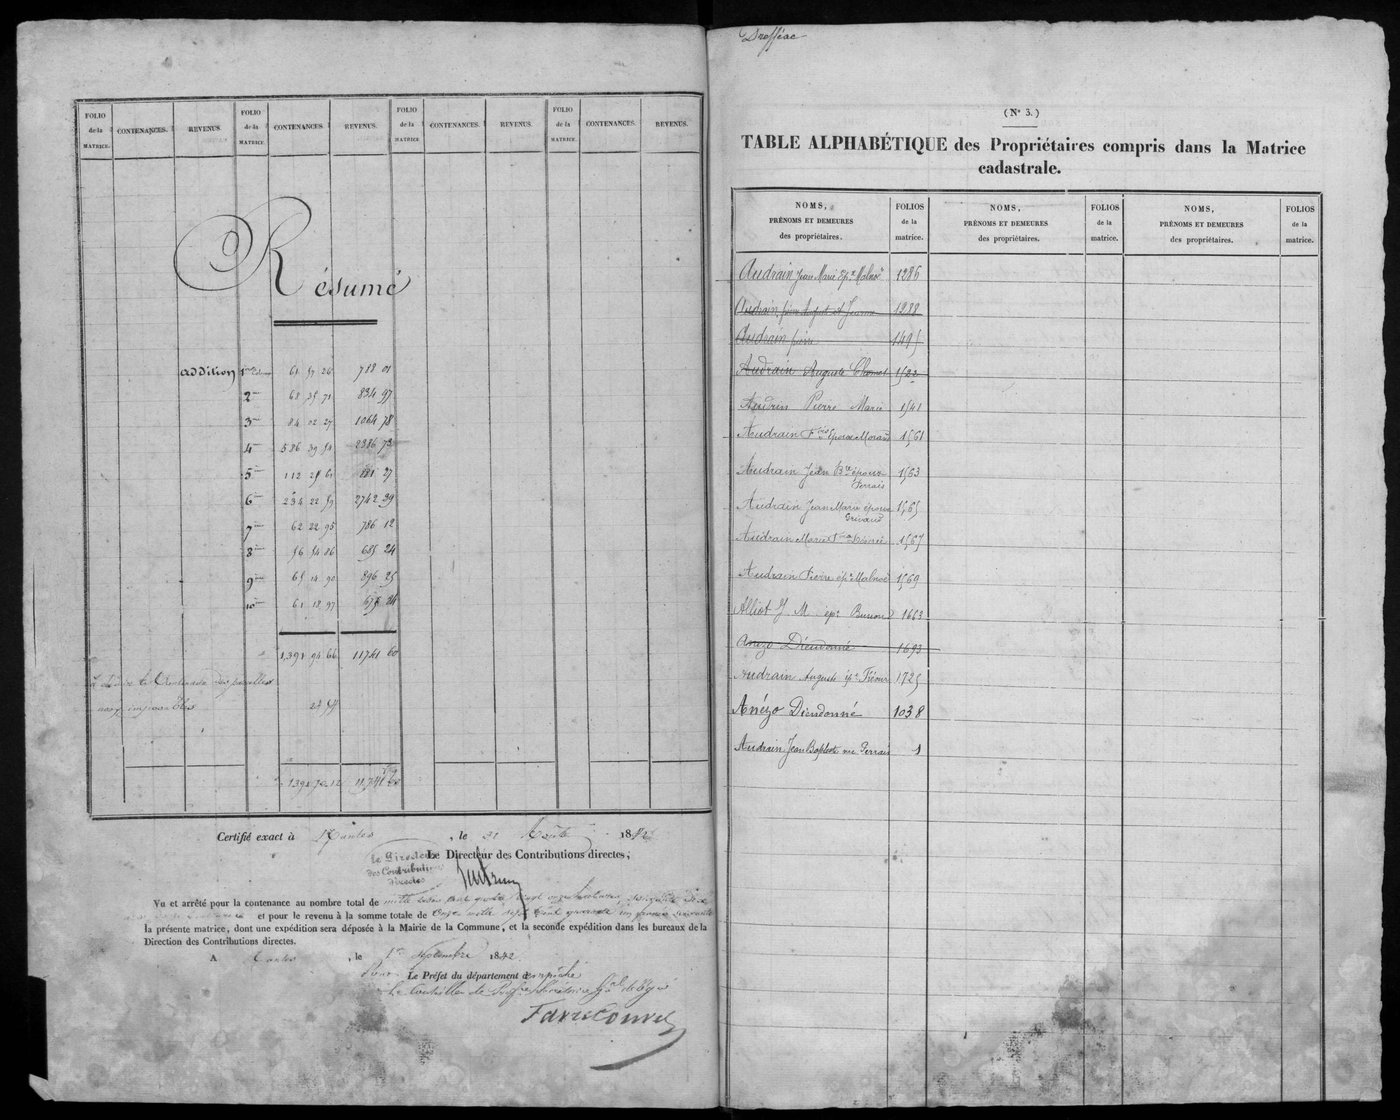 FOLIO de la MATRICE. CONTENANCES. REVENUS. FOLIO de la MATRICE. CONTENANCES. REVENUS. FOLIO de la MATRICE. CONTENANCES. REVENUS. FOLIO de la MATRICE. CONTENANCES. REVENUS.
Résumé
Addition 1ère 61 57 26 718 01
2me 68 35 71 834 97
3me 84 02 27 1064 78
4me 586 39 54 2386 73
5me 112 25 61 881 27
6me 234 22 59 2742 39
7me 62 22 95 786 12
8me 56 54 86 685 24
9me 65 14 90 896 25
10me 61 18 97
1,391 94 66 11741 60
non imposables
11,741 60
Certifié exact à Nantes, le 31 Août 1842
Le Directeur des Contributions directes,
Le Directeur
des Contributions
directes
Vu et arrêté pour la contenance au nombre total de mille trois cent quatre vingt onze hectares, soixante dix
et pour le revenu à la somme totale de Onze mille sept cent quarante un francs soixante
la présente matrice, dont une expédition sera déposée à la Mairie de la Commune, et la seconde expédition dans les bureaux de la
Direction des Contributions directes.
A Nantes, le 1er Septembre 1842.
Pour Le Préfet du département empêché
Le Conseiller de Préfre Secrétaire Gal délégué
Favrecouvel
Drefféac
(No 3.)
TABLE ALPHABÉTIQUE des Propriétaires compris dans la Matrice
cadastrale.
NOMS, PRÉNOMS ET DEMEURES des propriétaires. FOLIOS de la matrice. NOMS, PRÉNOMS ET DEMEURES des propriétaires. FOLIOS de la matrice. NOMS, PRÉNOMS ET DEMEURES des propriétaires. FOLIOS de la matrice.
Audrain Jean Marie Epx Malnoë 1286
Audrain, père August et Jeanne 1288
Audrain pierre 1495
Audrain Auguste 1522
Audrin Pierre Marie 1541
Audrain Fçois époux Morand 1561
Audrain Jean Bte époux
Perrais 1563
Audrain Jean Marie époux
Grivaud 1565
Audrain Marie 1567
Audrain Pierre épx Malnoë 1569
Alliot J. M. epx Burion 1663
Anézo Dieudonné 1693
Audrain Auguste épx Fréour 1725
Anézo Dieudonné 1038
Audrain Jean Baptiste Perrais 1